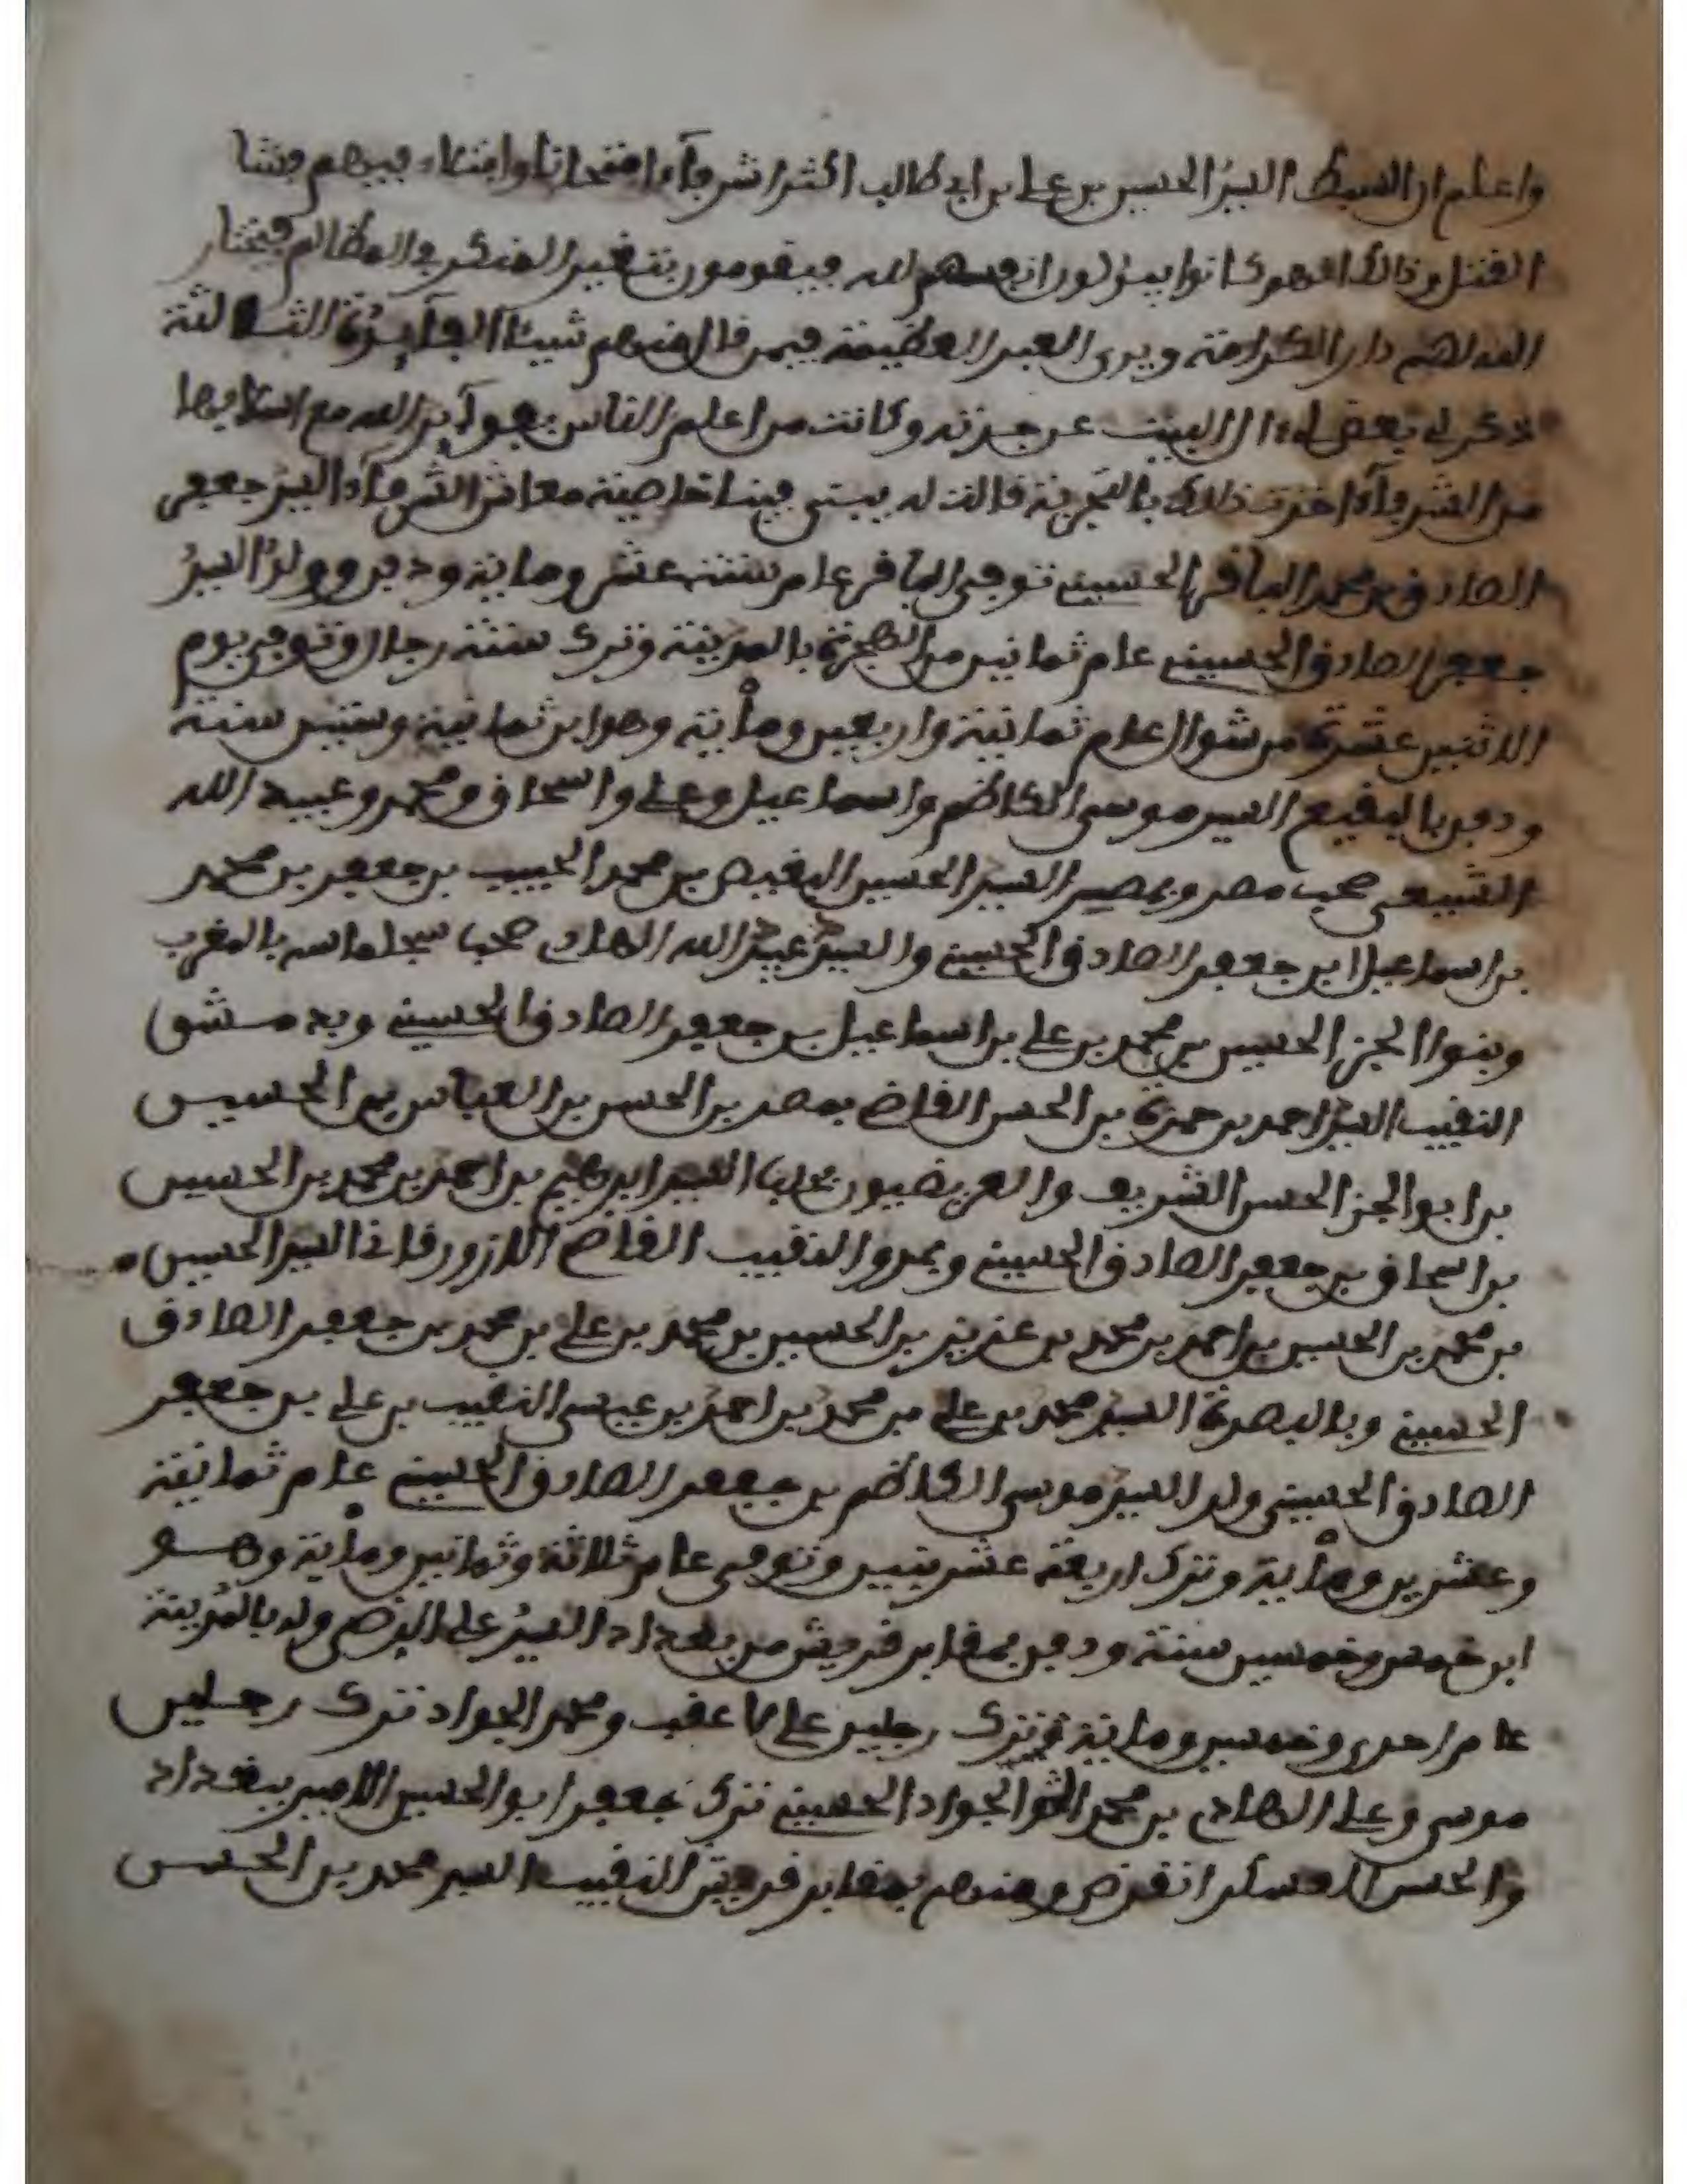 واعلم ان السبط السيد الحسين بن علي بن ابي طالب اكثر الشرفآء امتحانا وابتلاء فيهم فشا
القتل وذالك انهم كانوا يبذلون انفسهم لله فيقومون بتغيير المنكر والمظالم فيختار
الله لهم دار الكرامة ويرى العبر العظيمة فيمن نال منهم شيئا الفآيدة الثالثة
ذكر لي بعض البيت عن جدته وكانت من اعلم الناس بعوآيد الله مع
من الشرفآء اخذت ذلك بالتجربة قالت له يبني فينا خاصية معاشر الشرفآء السيد جعفر
الصادق بن محمد الباقر الحسيني توفي الباقر عام ستة عشر وماية ودفن وولد السيد
جعفر الصادق الحسيني عام ثمانين من الهجرة بالمدينة وترك ستة رجال وتوفي يوم
الاثنين عشرة من شوال عام ثمانية واربعين ومأية وهو ابن ثمانية وستين سنة
ودفن بالبقيع السيد موسى الكاظم واسماعيل وعلي واسحاق ومحمد وعبيد الله
الشيعي صحب مصر وبمصر السيد الحسين البغيض بن محمد الحبيب بن جعفر بن محمد
بن اسماعيل ابن جعفر الصادق الحسيني والسيد عبيد الله الهادي صحب سجلماسه بالمغرب
وبنوا الجن الحسين بن محمد بن علي بن اسماعيل بن جعفر الصادق الحسيني وبدمشق
النقيب السيد احمد بن حمزة بن الحسن القاضي بمصر بن الحسن بن العباس بن الحسين
بن ابو الجن الحسن الشريف والعريضيون بحلب السيد ابرهيم بن احمد بن محمد بن الحسين
بن اسحاق بن جعفر الصادق الحسيني وبمرو النقيب القاضي الازورقاني السيد الحسين
بن محمد بن الحسين بن احمد بن محمد بن عزيز بن الحسين بن محمد بن علي بن محمد بن جعفر الصادق
الحسيني وبالبصرة السيد محمد بن علي بن محمد بن احمد بن عيسى النقيب بن علي بن جعفر
الصادق الحسيني ولد السيد موسى الكاظم بن جعفر الصادق الحسيني عام ثمانية
وعشرين ومأية وترك اربعة عشر بنين وتوفي عام ثلاثة وثمانين ومأية وهو
ابن خمس وخمسين سنة ودفن بمقابر قريش من بغداد السيد علي الرضى ولد بالمدينة
عام احدى وخمسين وماية وترك رجلين علي ما عقب ومحمد الجواد ترك رجلين
موسى وعلي الهادي بن محمد الجواد الحسيني ترك جعفر ابو الحسين الامير ببغداد
والحسن العسكر انقرض ومنهم بمقابر قريش النقيب السيد محمد بن الحسن